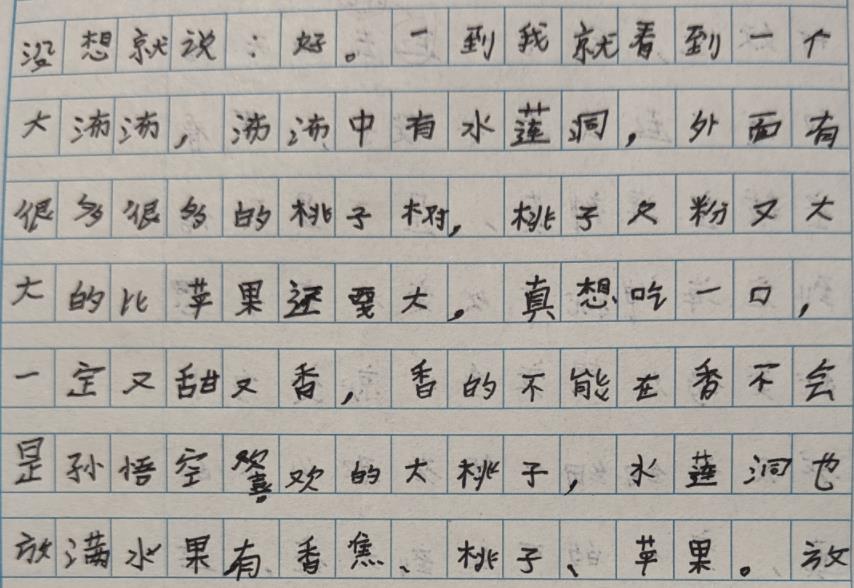 没想就说：好。一到我就看到一个
大沛沛，沛沛中有水莲洞，外面有
很多很多的桃子树，桃子又粉又大
大的比苹果还要大。真想吃一口，
一定又甜又香，香的不能在香不会
是孙悟空喜欢的大桃子，水莲洞也
放满水果有香焦、桃子、苹果。放